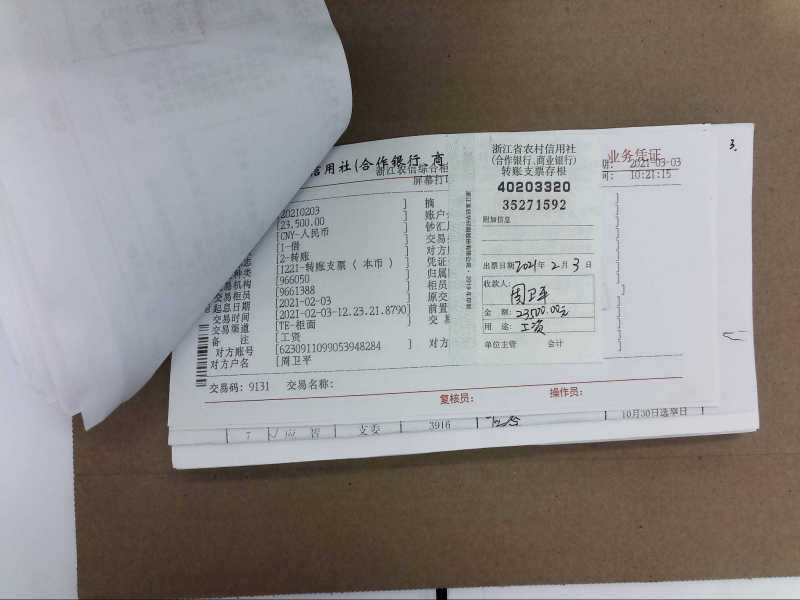 信用社(合作银行、商
业务凭证
浙江农信综合柜
屏幕打印
2021-03-03
10:21:15
3.
20210203
[23,500.00 ]
[CNY-人民币 ]
[1-借 ]
[2-转账 ]
[1221-转账支票(本币) ]
[966050 ]
交易机构 [9661388 ]
交易柜员 [2021-02-03 ]
起息日期 [2021-02-03-12.23.21.8790]
交易时间 [TE-柜面 ]
交易渠道 [工资 ]
备 注 [6230911099053948284 ]
对方账号 [周卫平 ]
对方户名
摘
账户
钞汇
交易
对方
凭证
归属
柜员
原交
前置
交易
对方
交易码: 9131 交易名称:
复核员: 操作员:
浙江省农村信用社
(合作银行、商业银行)
转账支票存根
40203320
35271592
附加信息
出票日期2021年 2 月 3 日
收款人:
周卫平
金 额: 23500.00元
用 途: 工资
单位主管 会计
7
支委
3916
10月30日选举日